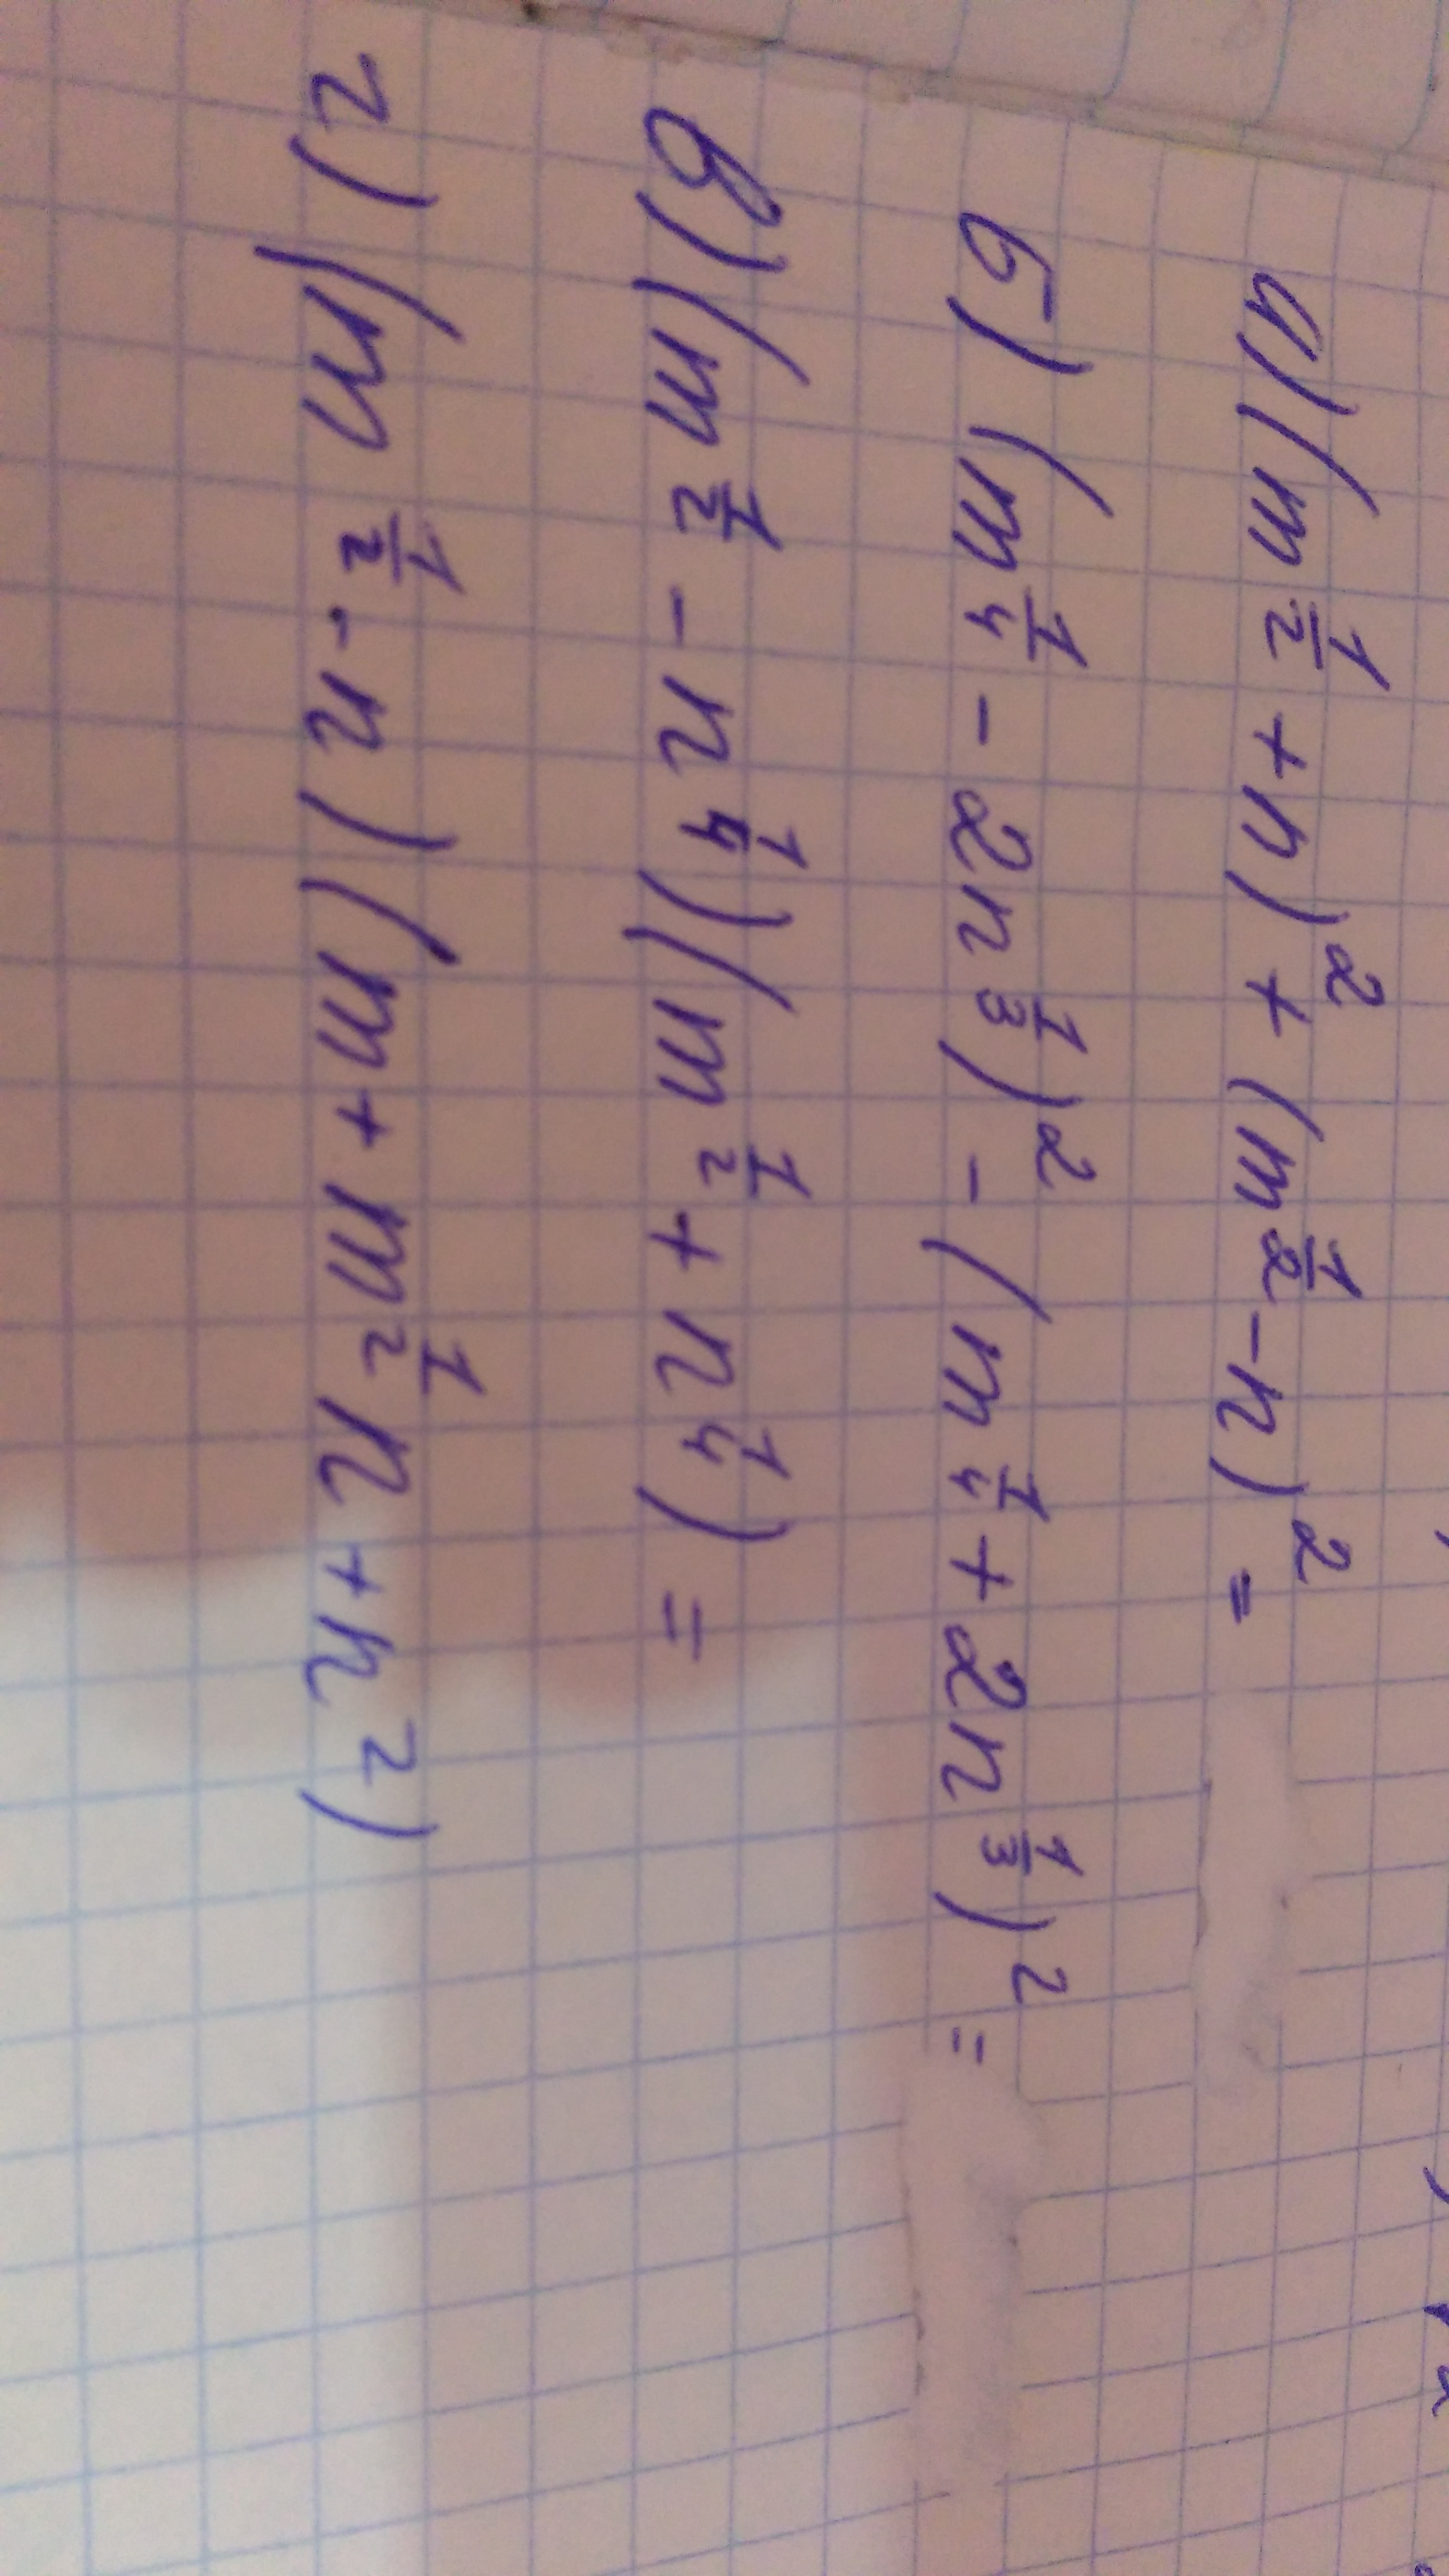 а) (m^{1/2} + n)^2 + (m^{1/2} - n)^2 =
б) (m^{1/4} - 2n^{1/3})^2 - (m^{1/4} + 2n^{1/3})^2 =
в) (m^{1/2} - n^{1/4})(m^{1/2} + n^{1/4}) =
г) (m^{1/2} - n)(m + m^{1/2} n + n^2)